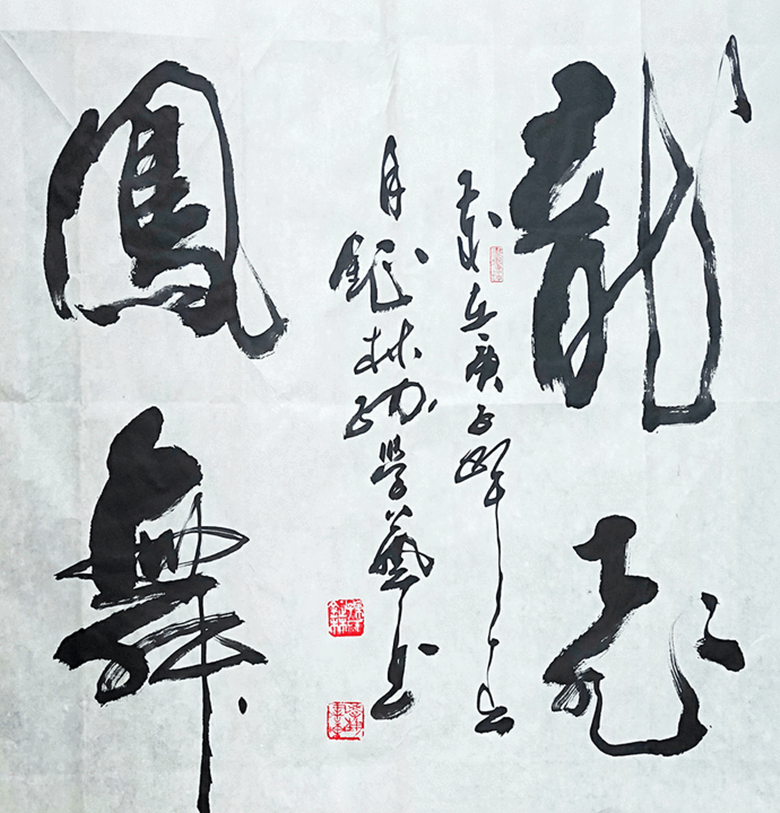 龍飛
鳳舞
歲在庚子年
月 林 學藝書